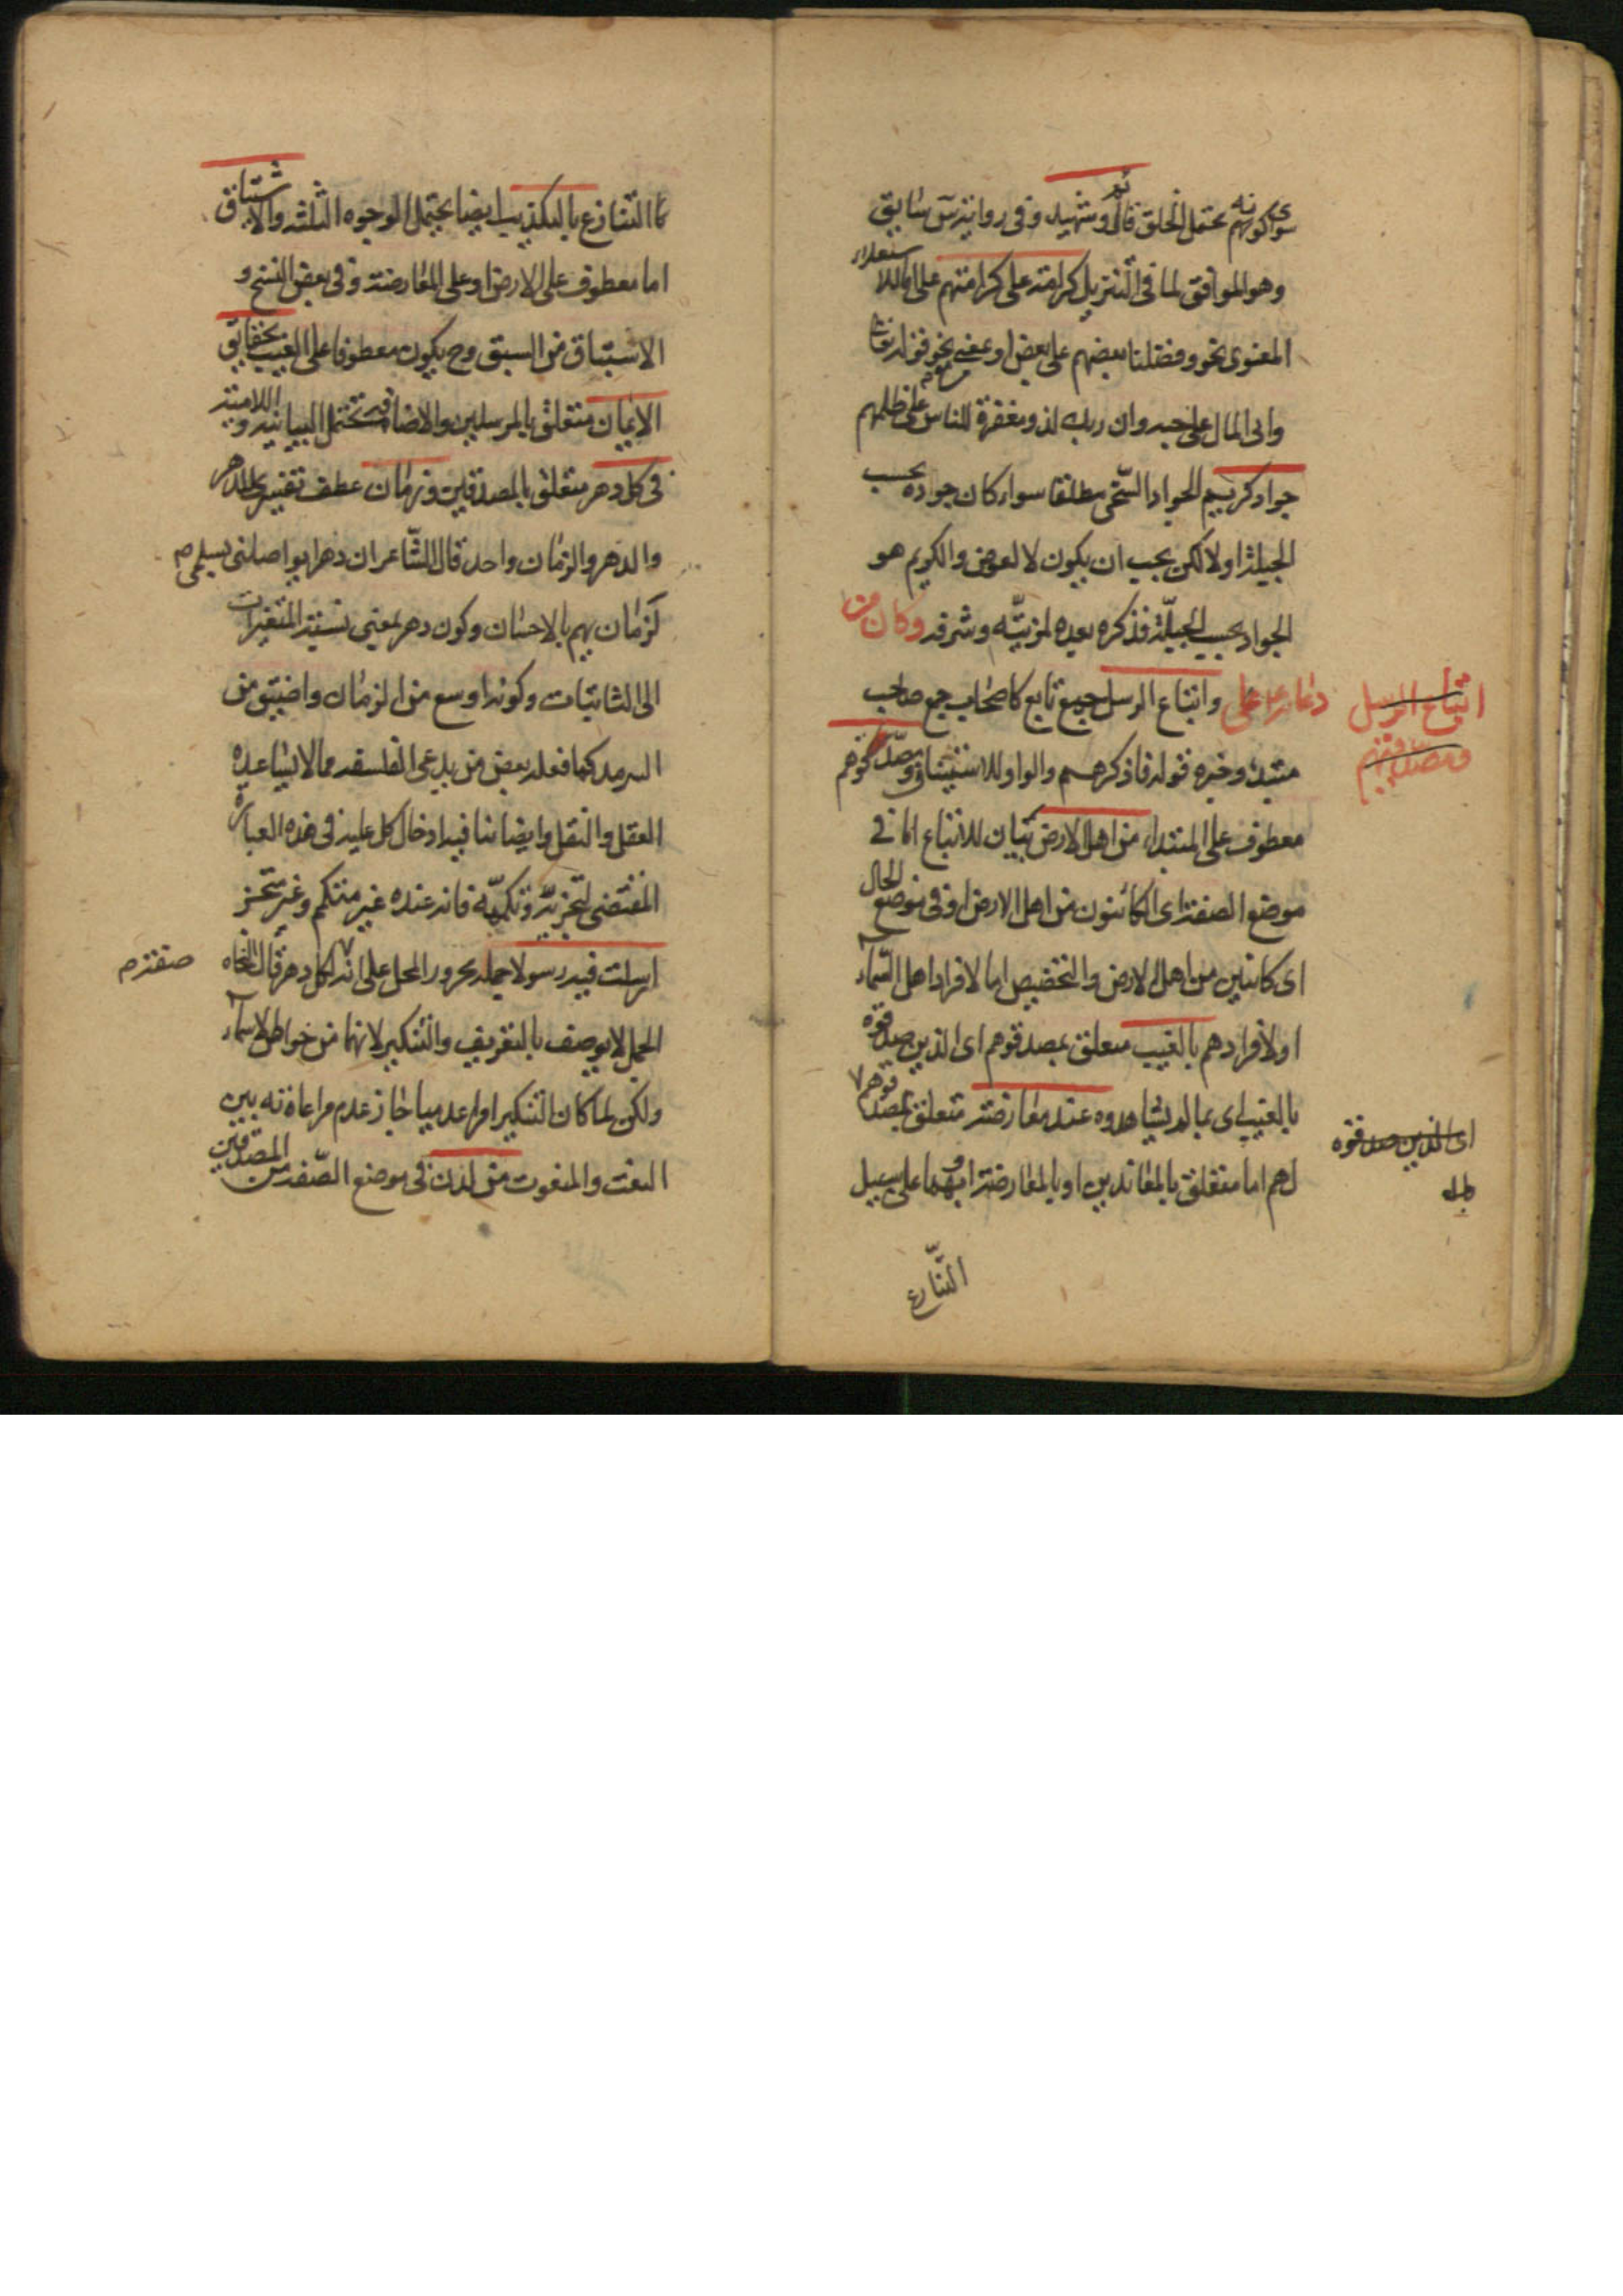 سوى كونهم يحتمل الخلق قائد وشهيد وفي رواية س سايق
وهو الموافق لما في التنزيل كرامة على كرامتهم على اما للاستعلاء
المعنوى نحو وفضلنا بعضهم على بعض او بمعنى مع نحو قوله تعالى
واتى المال على حبه وان ربك لذو مغفرة للناس على ظلمهم
جواد كريم الجواد السخى مطلقا سواء كان جوده بحسب
الجبلة اولا لكن يجب ان يكون لا لعوض والكريم هو
الجواد بحسب الجبلة فذكره بعده لمزيته وشرفه وكان من
دعائه على واتباع الرسل جمع تابع كاصحاب جمع صاحب
مبتدء وخبره قوله فاذكرهم والواو للاستيناف ومصدقوهم
معطوف على المبتداء من اهل الارض بيان للاتباع اما في
موضع الصفة اى الكائنون من اهل الارض او في موضع الحال
اى كائنين من اهل الارض والتخصيص اما لافراد اهل السماء
او لافرادهم بالغيب متعلق بمصدقوهم اى الذين صدقوه
بالغيب اى بما لم يشاهدوه عند معارضة متعلق بمصدقوهم
لهم اما متعلق بالمعاندين او بالمعارضة او بهما على سبيل
التنازع
اتباع الرسل
ومصدقوهم
اى الذين صدقوه
التنازع بالتكذيب ايضا يحتمل الوجوه الثلثة والاشتياق
اما معطوف على الارض او على المعارضة وفي بعض النسخ و
الاستباق من السبق وح يكون معطوفا على الغيب بحقايق
الايمان متعلق بالمرسلين والاضافة تحتمل البيانية واللامية
في كل دهر متعلق بالمصدقين وزمان عطف تفسير على الدهر
والدهر والزمان واحد قال الشاعر ان دهرا يواصلنى بسلمى
لزمان يهم بالاحسان وكون دهر بمعنى نسبة المتغيرات
الى الثابتات وكونه اوسع من الزمان واضيق من
السرمد كما فعله بعض من يدعى الفلسفه مما لا يساعده
العقل والنقل وايضا ينافيه ادخال كل عليه في هذه العبارة
المقتضى لتجزيه وتكميه فانه عنده غير متكمم وغير متجز
ارسلت فيه رسولا جملة مجرور المحل على انه لكل دهر قال النحاة
صفة م
الجمل لا يوصف بالتعريف والتنكير لانهما من خواص الاسماء
ولكن لما كان التنكير امرا عدميا جاز عدم مراعاته بين
النعت والمنعوت من لدن في موضع الصفة من المصدقين